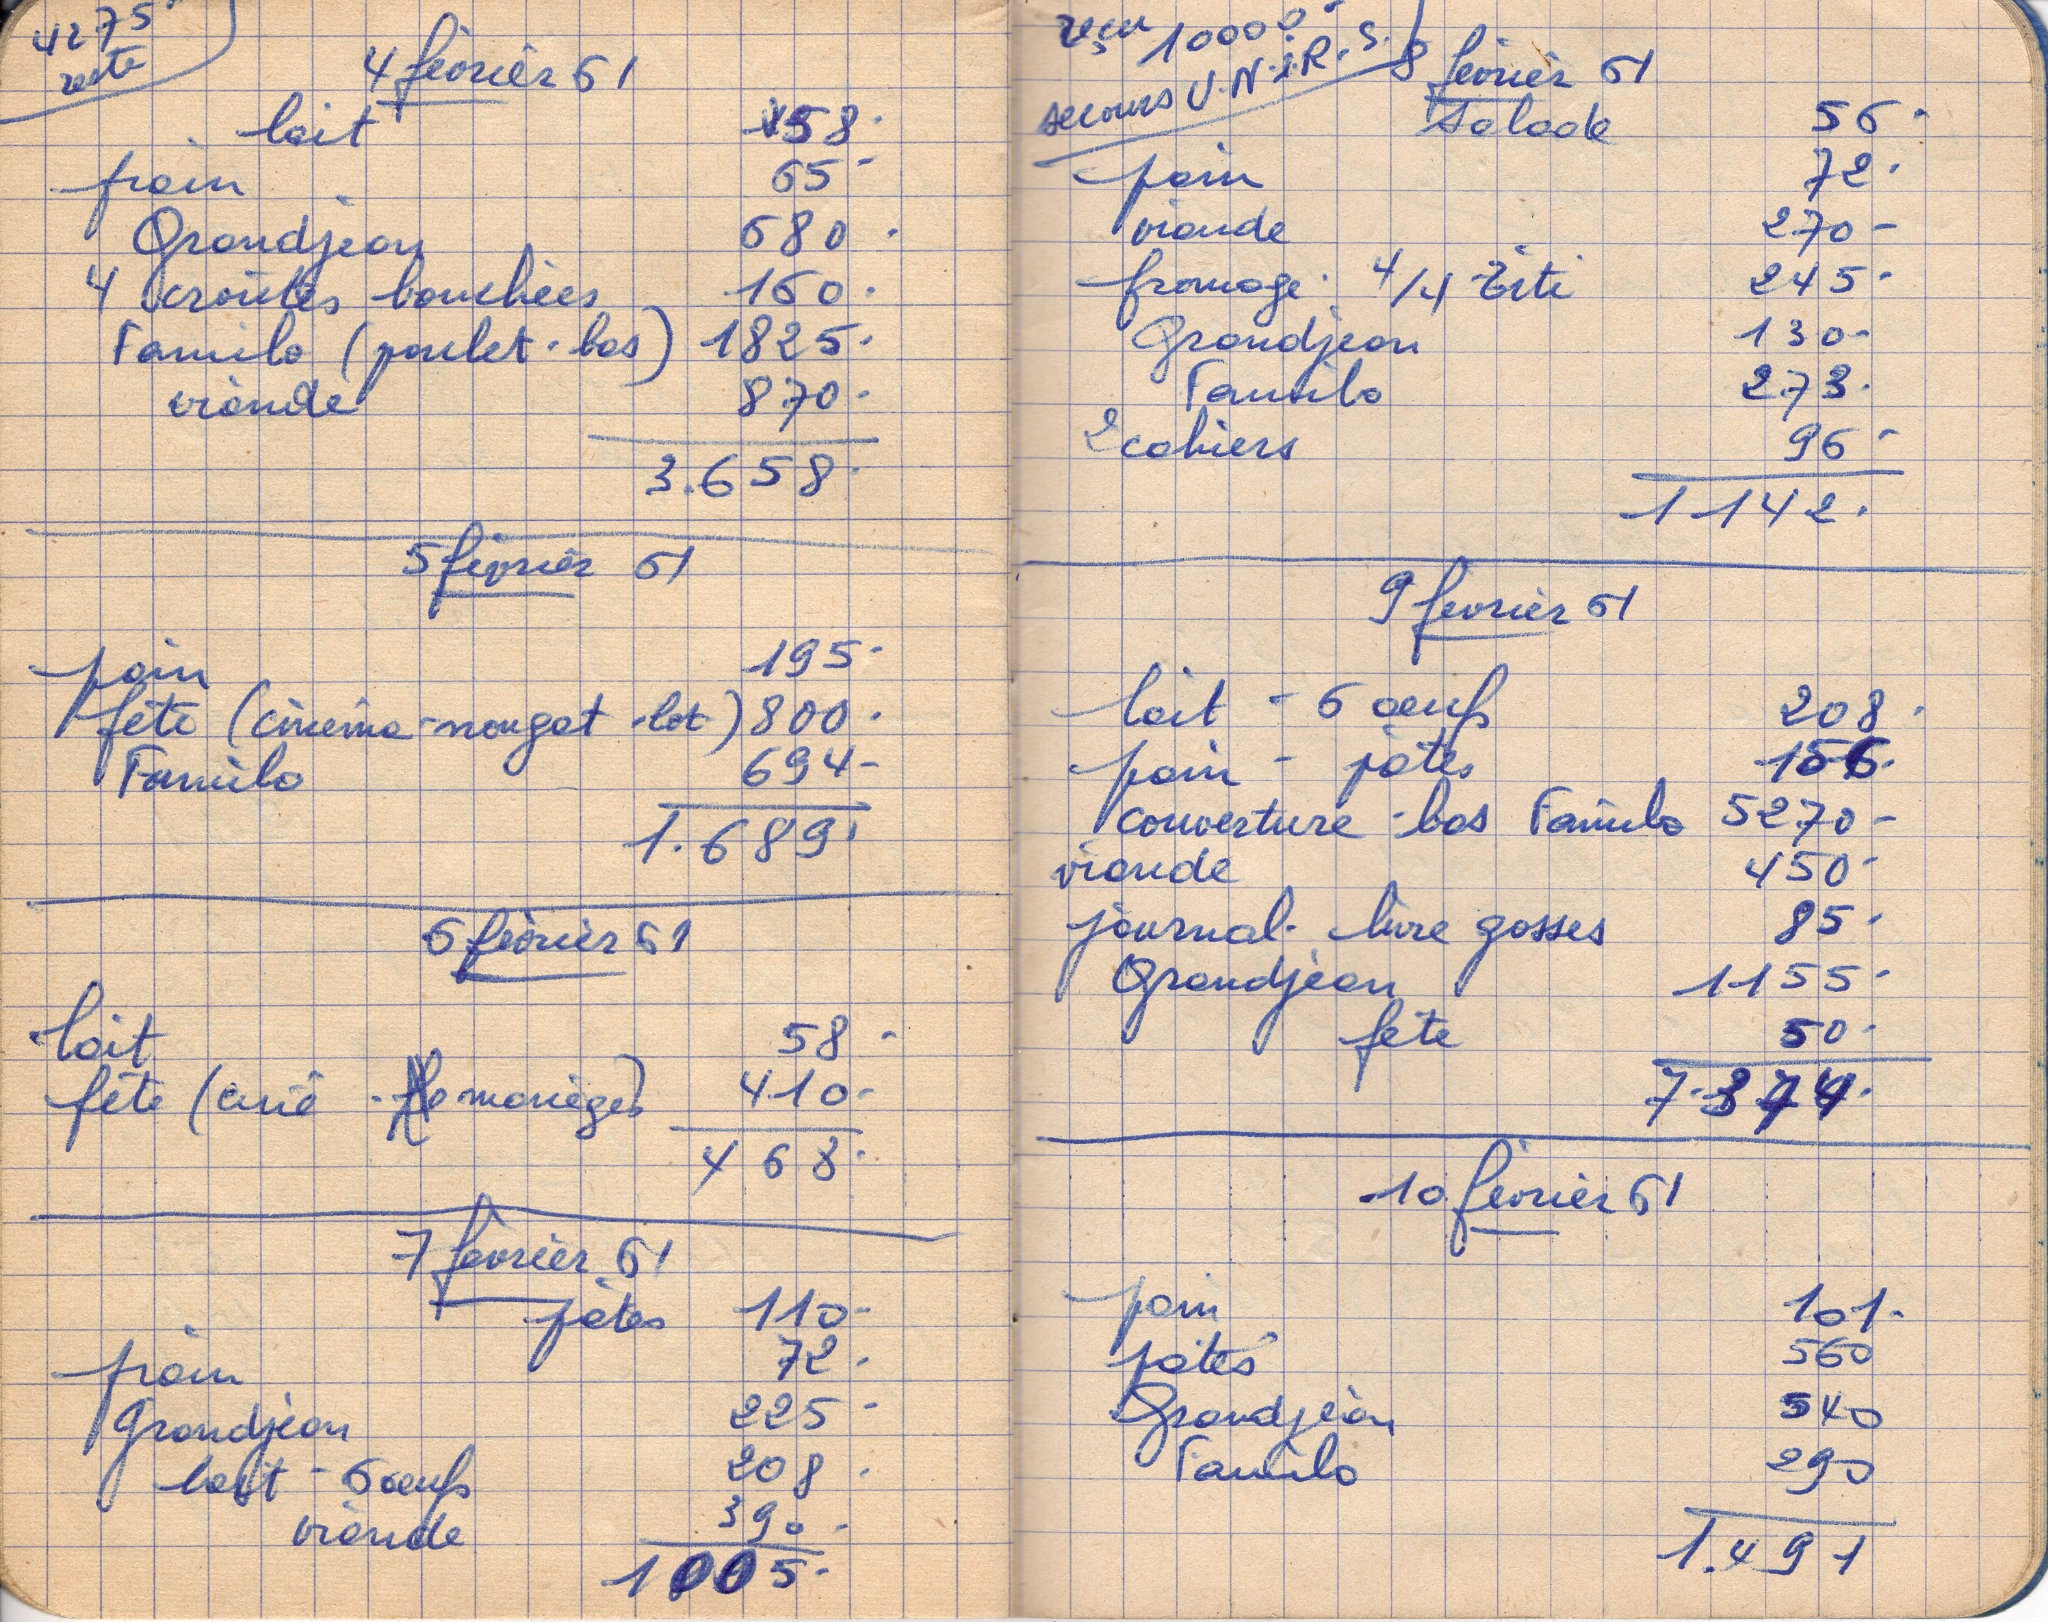 4275-
reste
4 février 61
lait 58.
pain 65-
Grandjean 680.
4 croûtes bouchées 160.
Familo (poulet. bas) 1825.
viande 870.
3.658.
5 février 61
pain 195.
fête (cinéma-nougat-lot) 800.
Familo 694-
1.689.
6 février 61
lait 58-
fête (ciné - manèges) 410-
468.
7 février 61
pâtes 110-
pain 72.
Grandjean 225-
lait - 6 oeufs 208.
viande 390-
1005.
reçu 10000-
secours U.N.I.R.S.
8 février 61
salade 56.
pain 72.
viande 270-
fromage. 4/4 245.
Grandjean 130-
Familo 273.
2 cahiers 96-
1142.
9 février 61
lait - 6 oeufs 208.
pain - pâtes 156.
couverture - bas Familo 5270-
viande 450-
journal. livre gosses 85.
Grandjean 1155-
fête 50.
7.374.
10 février 61
pain 101.
pâtes 560
Grandjean 540
Familo 290
1.491